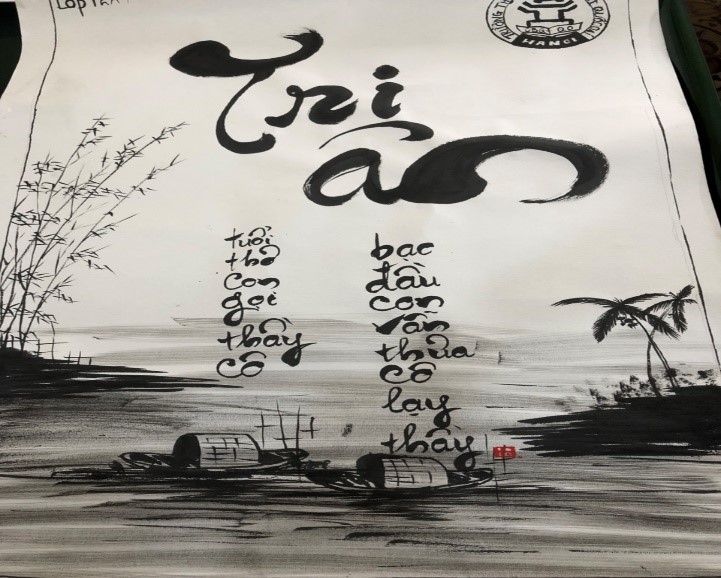 Tri
ân
tuổi
thơ
con
gọi
thầy
cô
bạc
đầu
con
vẫn
thưa
cô
lạy
thầy
HANOI